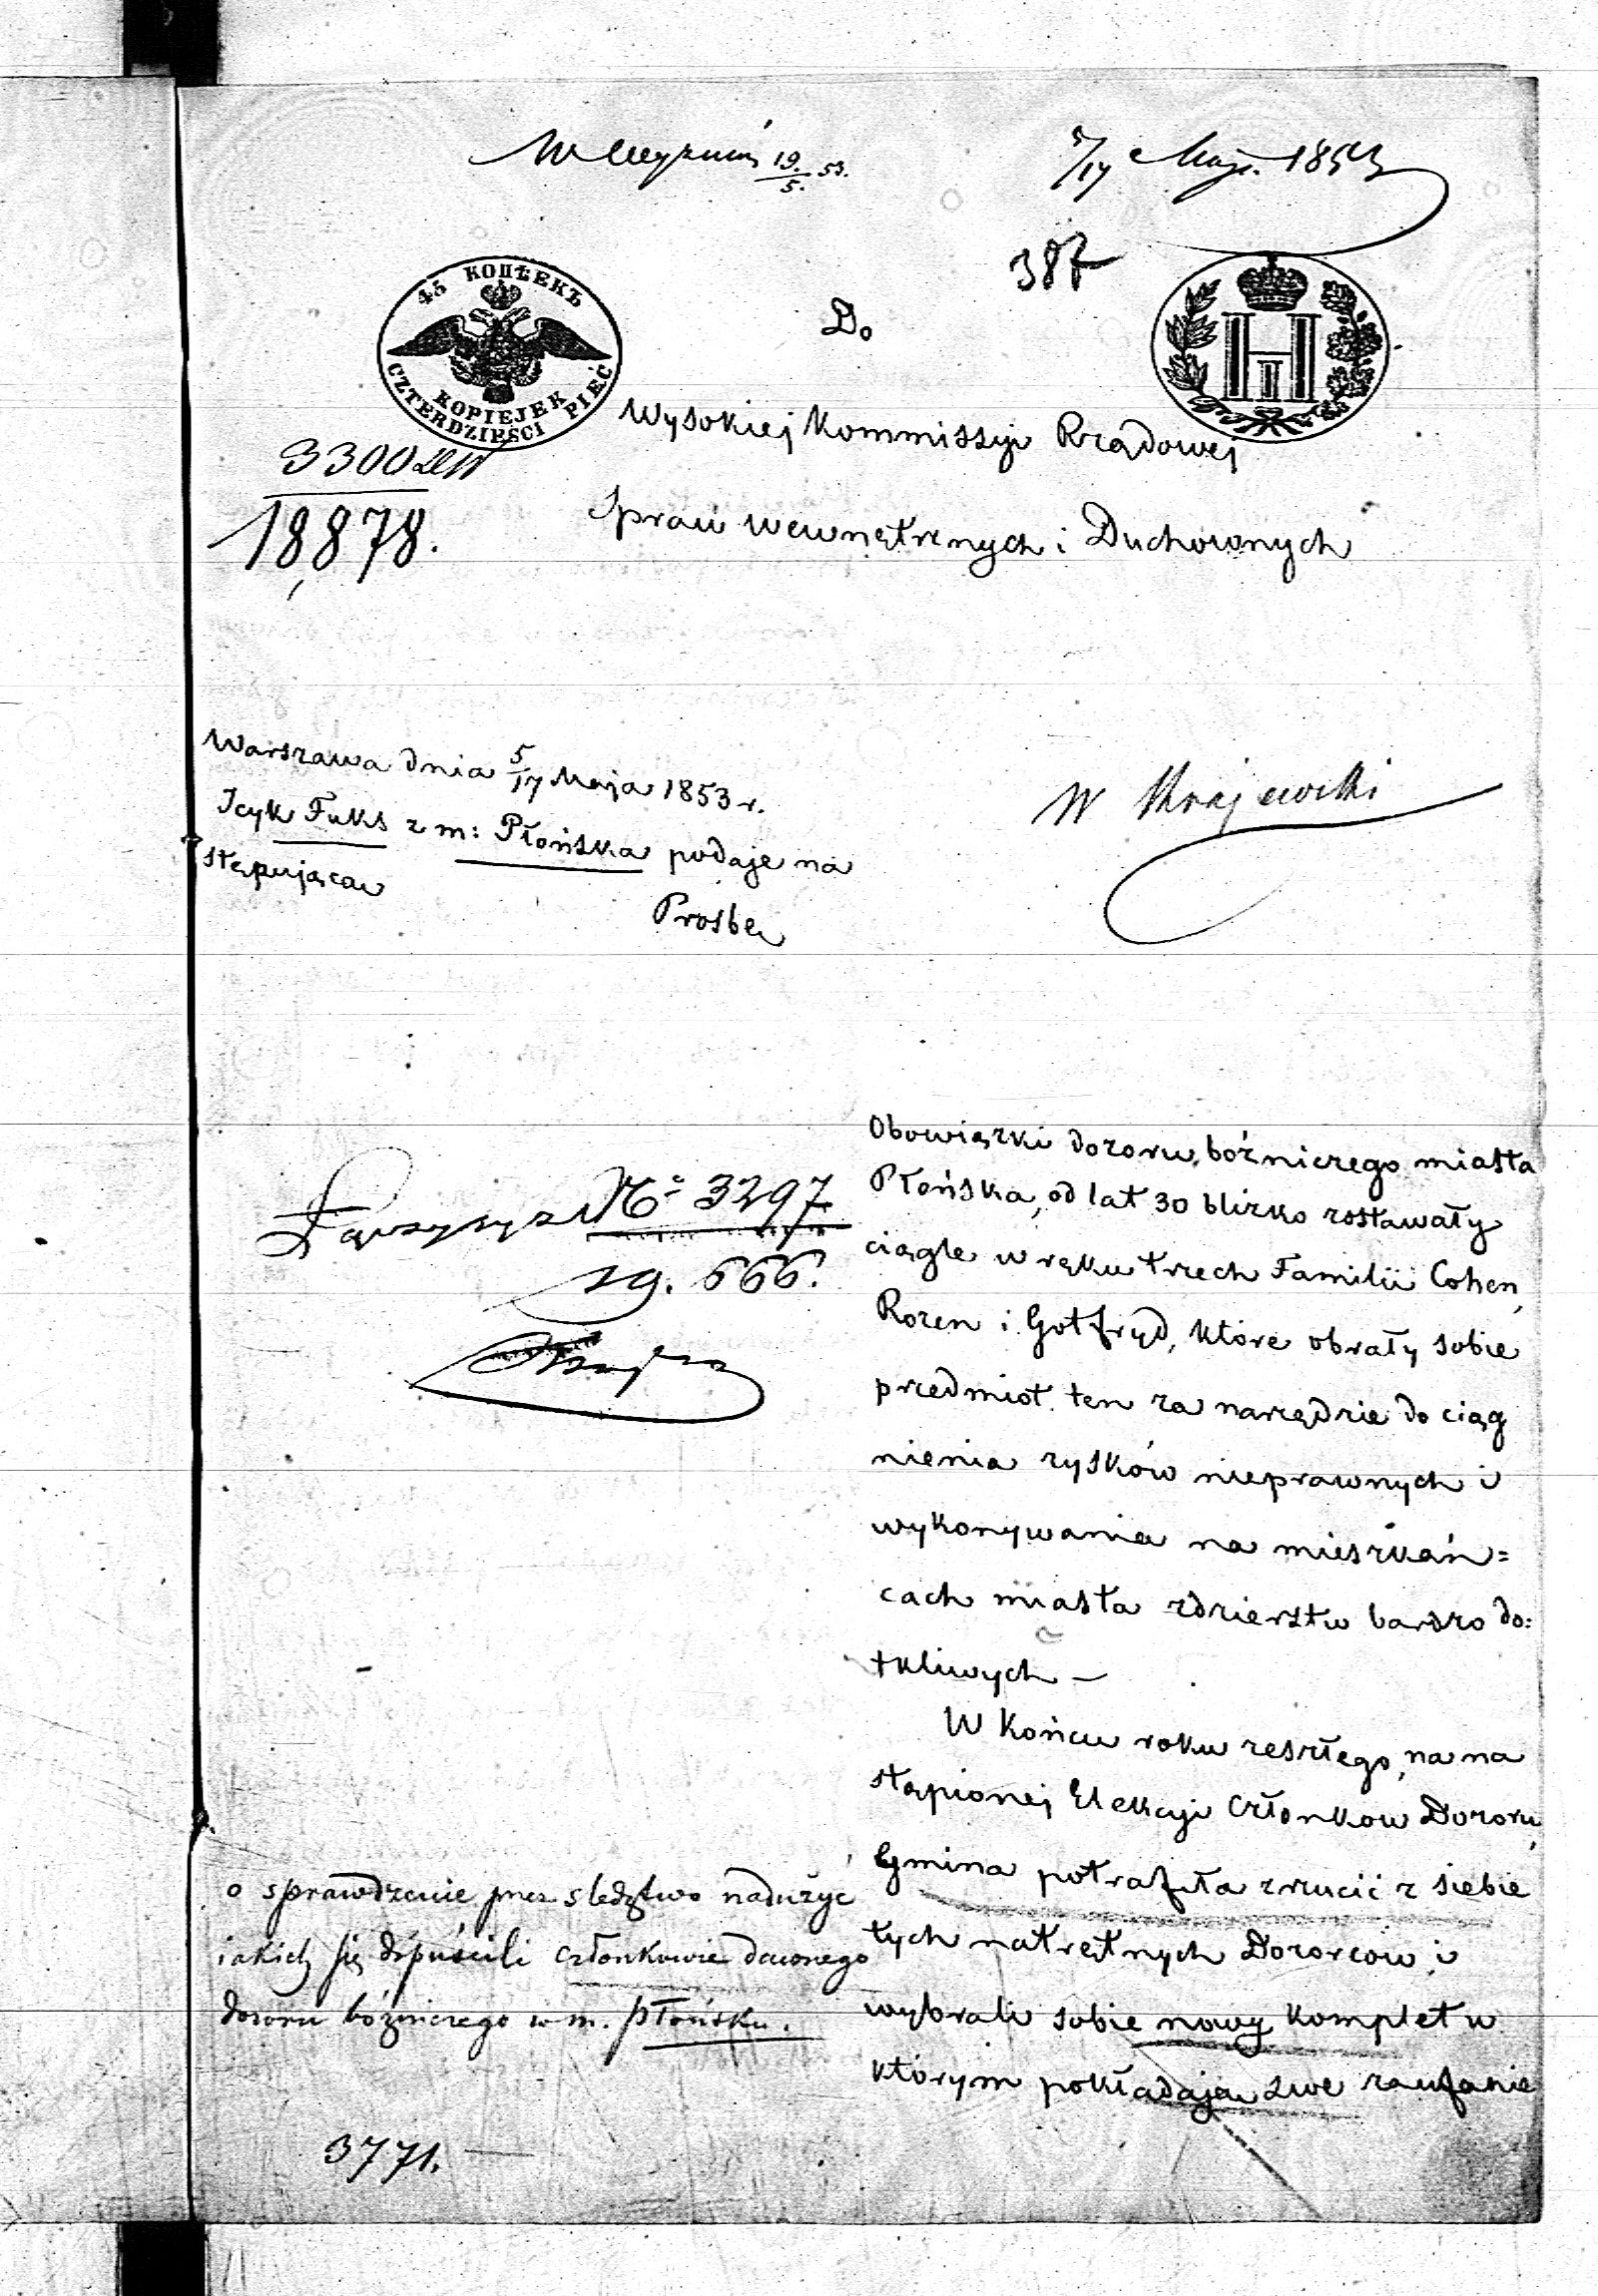 19/5 53.
5/17 Maja 1853
387
45 КОПѢЕКЪ
KOPIEJEK
CZTERDZIEŚCI PIĘĆ
Do
HI
Wysokiej Kommissyi Rządowej
3300
18,878.
Spraw wewnętrznych i Duchownych
Warszawa dnia 5/17 Maja 1853 r.
Icyk Fuks z m: Płońska podaje na
stępującą
Prosbę
W Krajewski
Obowiązki dozoru bóżniczego miasta
Płońska, od lat 30 blizko zostawały
ciągle w ręku trzech Familii Cohen,
Rozen i Gotfryd, które obrały sobie
przedmiot ten za narzędzie do ciąg
nienia zysków nieprawnych i
wykonywania na mieszkań=
cach miasta zdzierstw bardzo do=
tkliwych –
W końcu roku zeszłego, na na
stąpionej Elekcyi Członkow Dozoru,
Gmina potrafiła zrzucić z siebie
tych natrętnych Dozorców i
wybrali sobie nowy komplet w
którym pokładają swe zaufanie
No 3297
19. 666.
o sprawdzenie przez sledztwo nadużyć
iakich się dopuścili członkowie dawnego
dozoru bóżniczego w m. Płońsku.
3771.